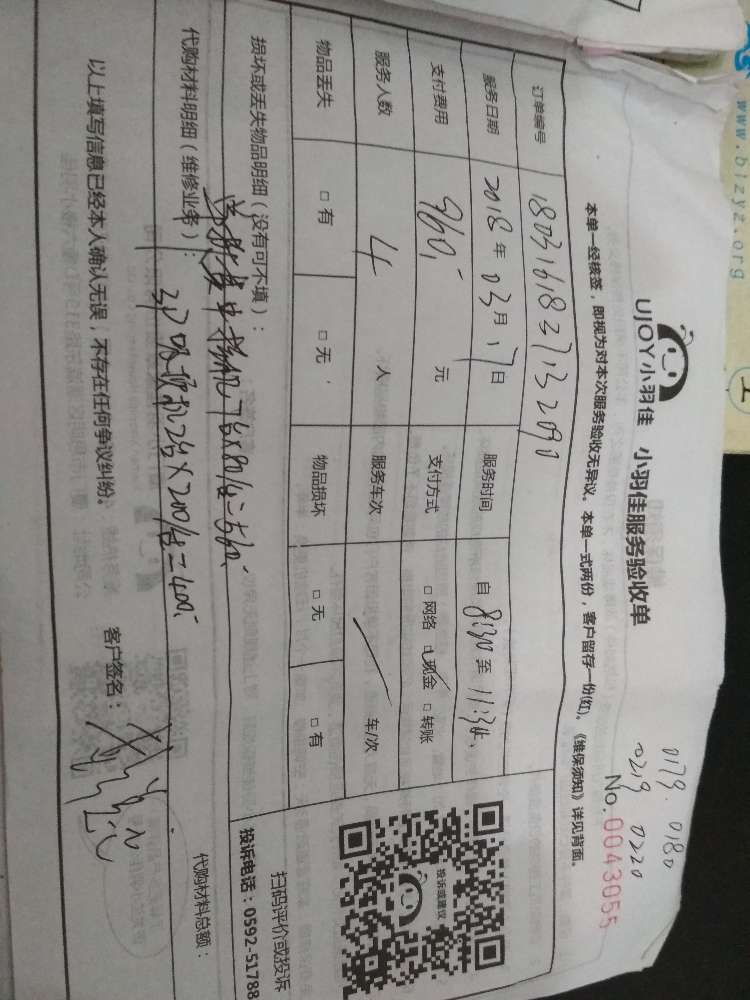 www.blzyz.org
0179. 0180
0219 0220
UJOY小羽佳 小羽佳服务验收单
No. 0043055
本单一经核签，即视为对本次服务验收无异议。本单一式两份，客户留存一份(红)。《维保须知》详见背面。
订单编号 1803161837132090
服务日期 2018年03月17日 服务时间 自8:30至11:34.
支付费用 960.- 元 支付方式 □网络 ☑现金 □转账
服务人数 4 人 服务车次 / 车/次
物品丢失 □有 □无 物品损坏 □无 □有
投诉或建议
扫码评价或投诉
投诉电话：0592-51788
损坏或丢失物品明细（没有可不填）：
7台×80/台=560.-
代购材料明细（维修业务）：
3P吸顶机2台×200/台=400.-
代购材料总额：
以上填写信息已经本人确认无误，不存在任何争议纠纷。
客户签名：